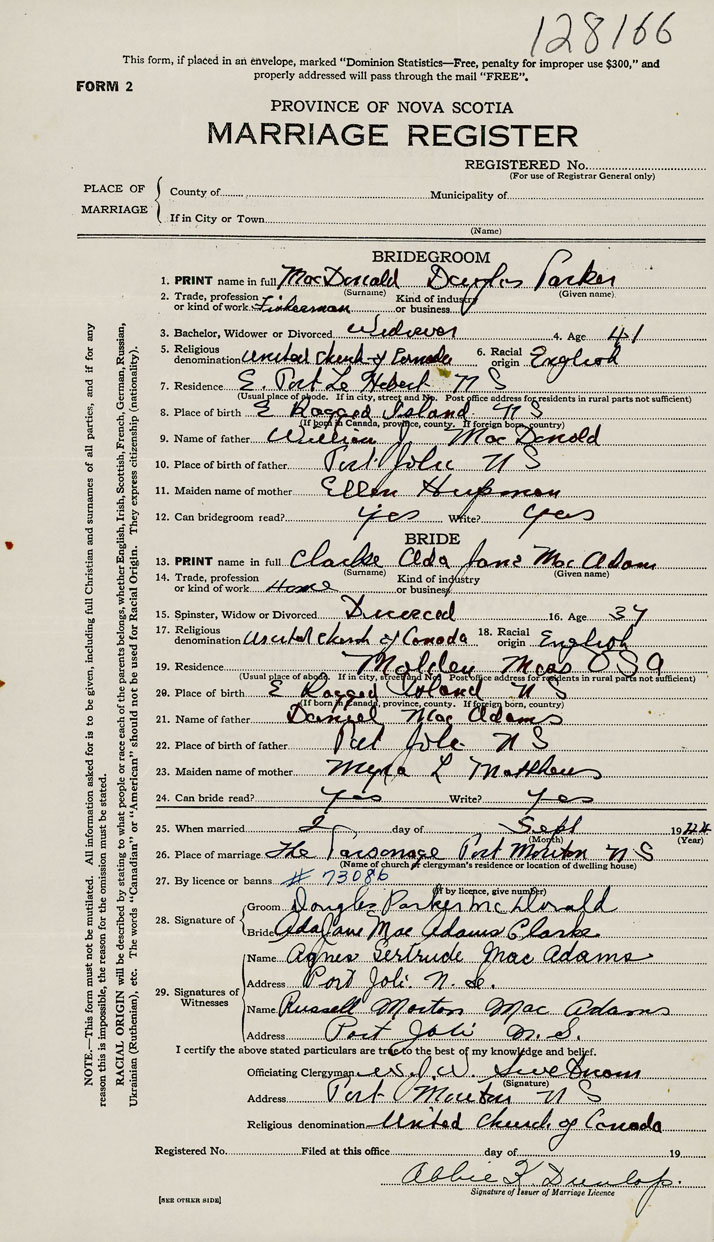 128166
This form, if placed in an envelope, marked "Dominion Statistics—Free, penalty for improper use $300," and
properly addressed will pass through the mail "FREE".
FORM 2
PROVINCE OF NOVA SCOTIA
MARRIAGE REGISTER
REGISTERED No.
(For use of Registrar General only)
PLACE OF MARRIAGE
County of Municipality of
If in City or Town
(Name)
BRIDEGROOM
1. PRINT name in full MacDonald Douglas Parker
(Surname) (Given name)
2. Trade, profession or kind of work Fisherman Kind of industry or business
3. Bachelor, Widower or Divorced Widower 4. Age 41
5. Religious denomination United Church of Canada 6. Racial origin English
7. Residence E. Port Le Hebert N S
(Usual place of abode. If in city, street and No. Post office address for residents in rural parts not sufficient)
8. Place of birth E Ragged Island N S
(If born in Canada, province, county. If foreign born, country)
9. Name of father William J MacDonald
10. Place of birth of father Port Jolie N S
11. Maiden name of mother Ellen Hupman
12. Can bridegroom read? yes Write? yes
BRIDE
13. PRINT name in full Clarke Ada Jane Mac Adam
(Surname) (Given name)
14. Trade, profession or kind of work Home Kind of industry or business
15. Spinster, Widow or Divorced Divorced 16. Age 37
17. Religious denomination United Church of Canada 18. Racial origin English
19. Residence Malden Mass U S A
(Usual place of abode. If in city, street and No. Post office address for residents in rural parts not sufficient)
20. Place of birth E Ragged Island N S
(If born in Canada, province, county. If foreign born, country)
21. Name of father Daniel Mac Adams
22. Place of birth of father Port Jolie N S
23. Maiden name of mother Myra L Matthews
24. Can bride read? yes Write? yes
25. When married 2 day of Sept 19
(Month) (Year)
26. Place of marriage The Parsonage Port Mouton N S
(Name of church or clergyman's residence or location of dwelling house)
27. By licence or banns # 73086
(If by licence, give number)
28. Signature of
Groom Douglas Parker McDonald
Bride Ada Jane Mac Adams Clarke
29. Signatures of Witnesses
Name Agnes Gertrude Mac Adams
Address Port Joli N. S.
Name Russell Morton Mac Adams
Address Port Joli N. S.
I certify the above stated particulars are true to the best of my knowledge and belief.
Officiating Clergyman
(Signature)
Address Port Mouton N S
Religious denomination United Church of Canada
Registered No. Filed at this office day of 19
Abbie K Dunlop.
Signature of Issuer of Marriage Licence
[SEE OTHER SIDE]
NOTE.—This form must not be mutilated. All information asked for is to be given, including full Christian and surnames of all parties, and if for any
reason this is impossible, the reason for the omission must be stated.
RACIAL ORIGIN will be described by stating to what people or race each of the parents belongs, whether English, Irish, Scottish, French, German, Russian,
Ukrainian (Ruthenian), etc. The words "Canadian" or "American" should not be used for Racial Origin. They express citizenship (nationality).